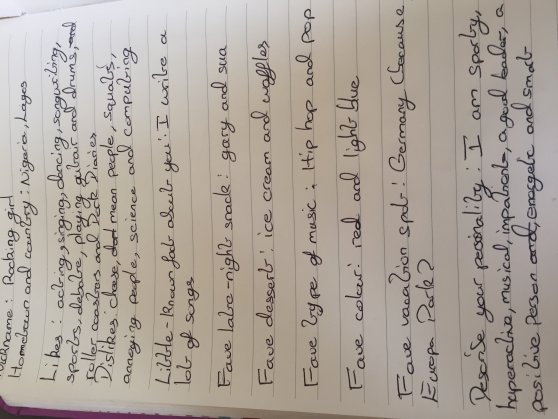 Nickname: Rocking girl
Hometown and country: Nigeria, Lagos
Likes: acting, singing, dancing, songwriting,
sports, debate, playing guitar and drums, and
roller coasters and Dork Diaries
Dislikes: chess, mean people, squats,
annoying people, science and computing
Little-known fact about you: I write a
lot of songs
Fave late-night snack: gary and sua
Fave dessert: ice cream and waffles
Fave type of music: Hip hop and pop
Fave colour: red and light blue
Fave vacation spot: Germany (because
Europa Park?
Describe your personality: I am sporty,
hyperactive, musical, impatient, a good leader, a
positive person and, energetic and smart